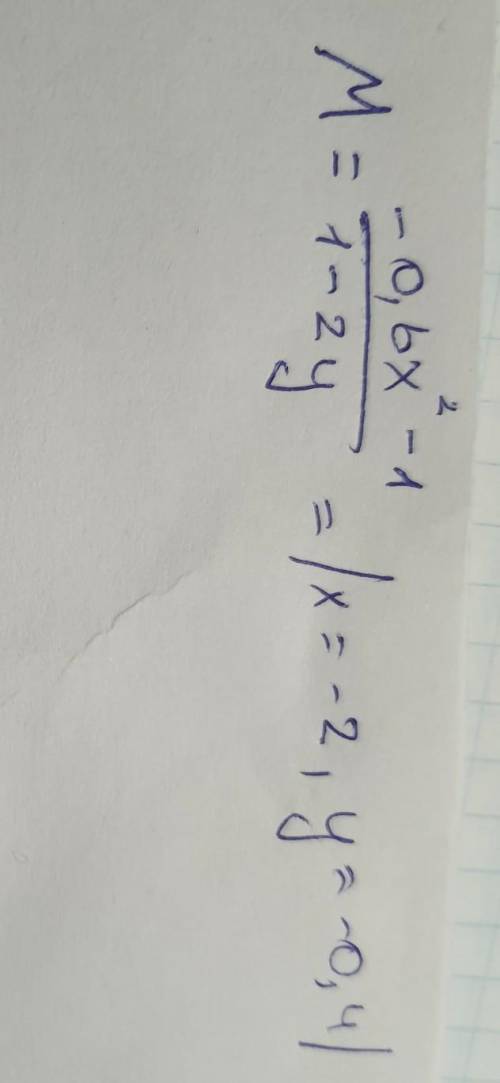 M = (-0,6x² - 1)/(1 - 2y) = /x = -2, y = -0,4/